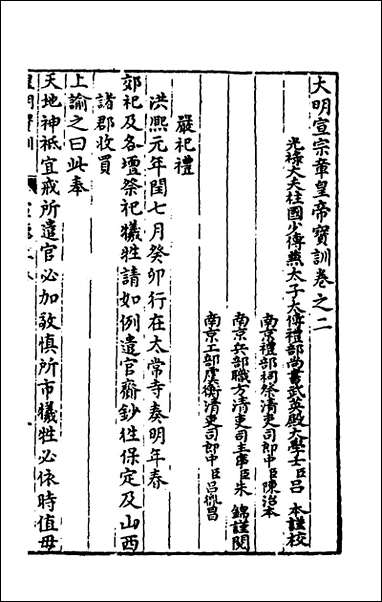 大明宣宗章皇帝寶訓卷之二
光祿大夫柱國少傅兼太子太傅禮部尚書武英殿大學士臣呂本謹校
南京禮部祠祭清吏司郎中臣陳治本
南京兵部職方清吏司主事臣朱錦謹閱
南京工部虞衡清吏司郎中臣呂胤昌
嚴祀禮
洪熙元年閏七月癸卯行在太常寺奏明年春
郊祀及各壇祭祀犧牲請如例遣官齎鈔徃保定及山西
諸郡收買
上諭之曰此奉
天地神祇宜戒所遣官必加敬慎所市犧牲必依時值毋